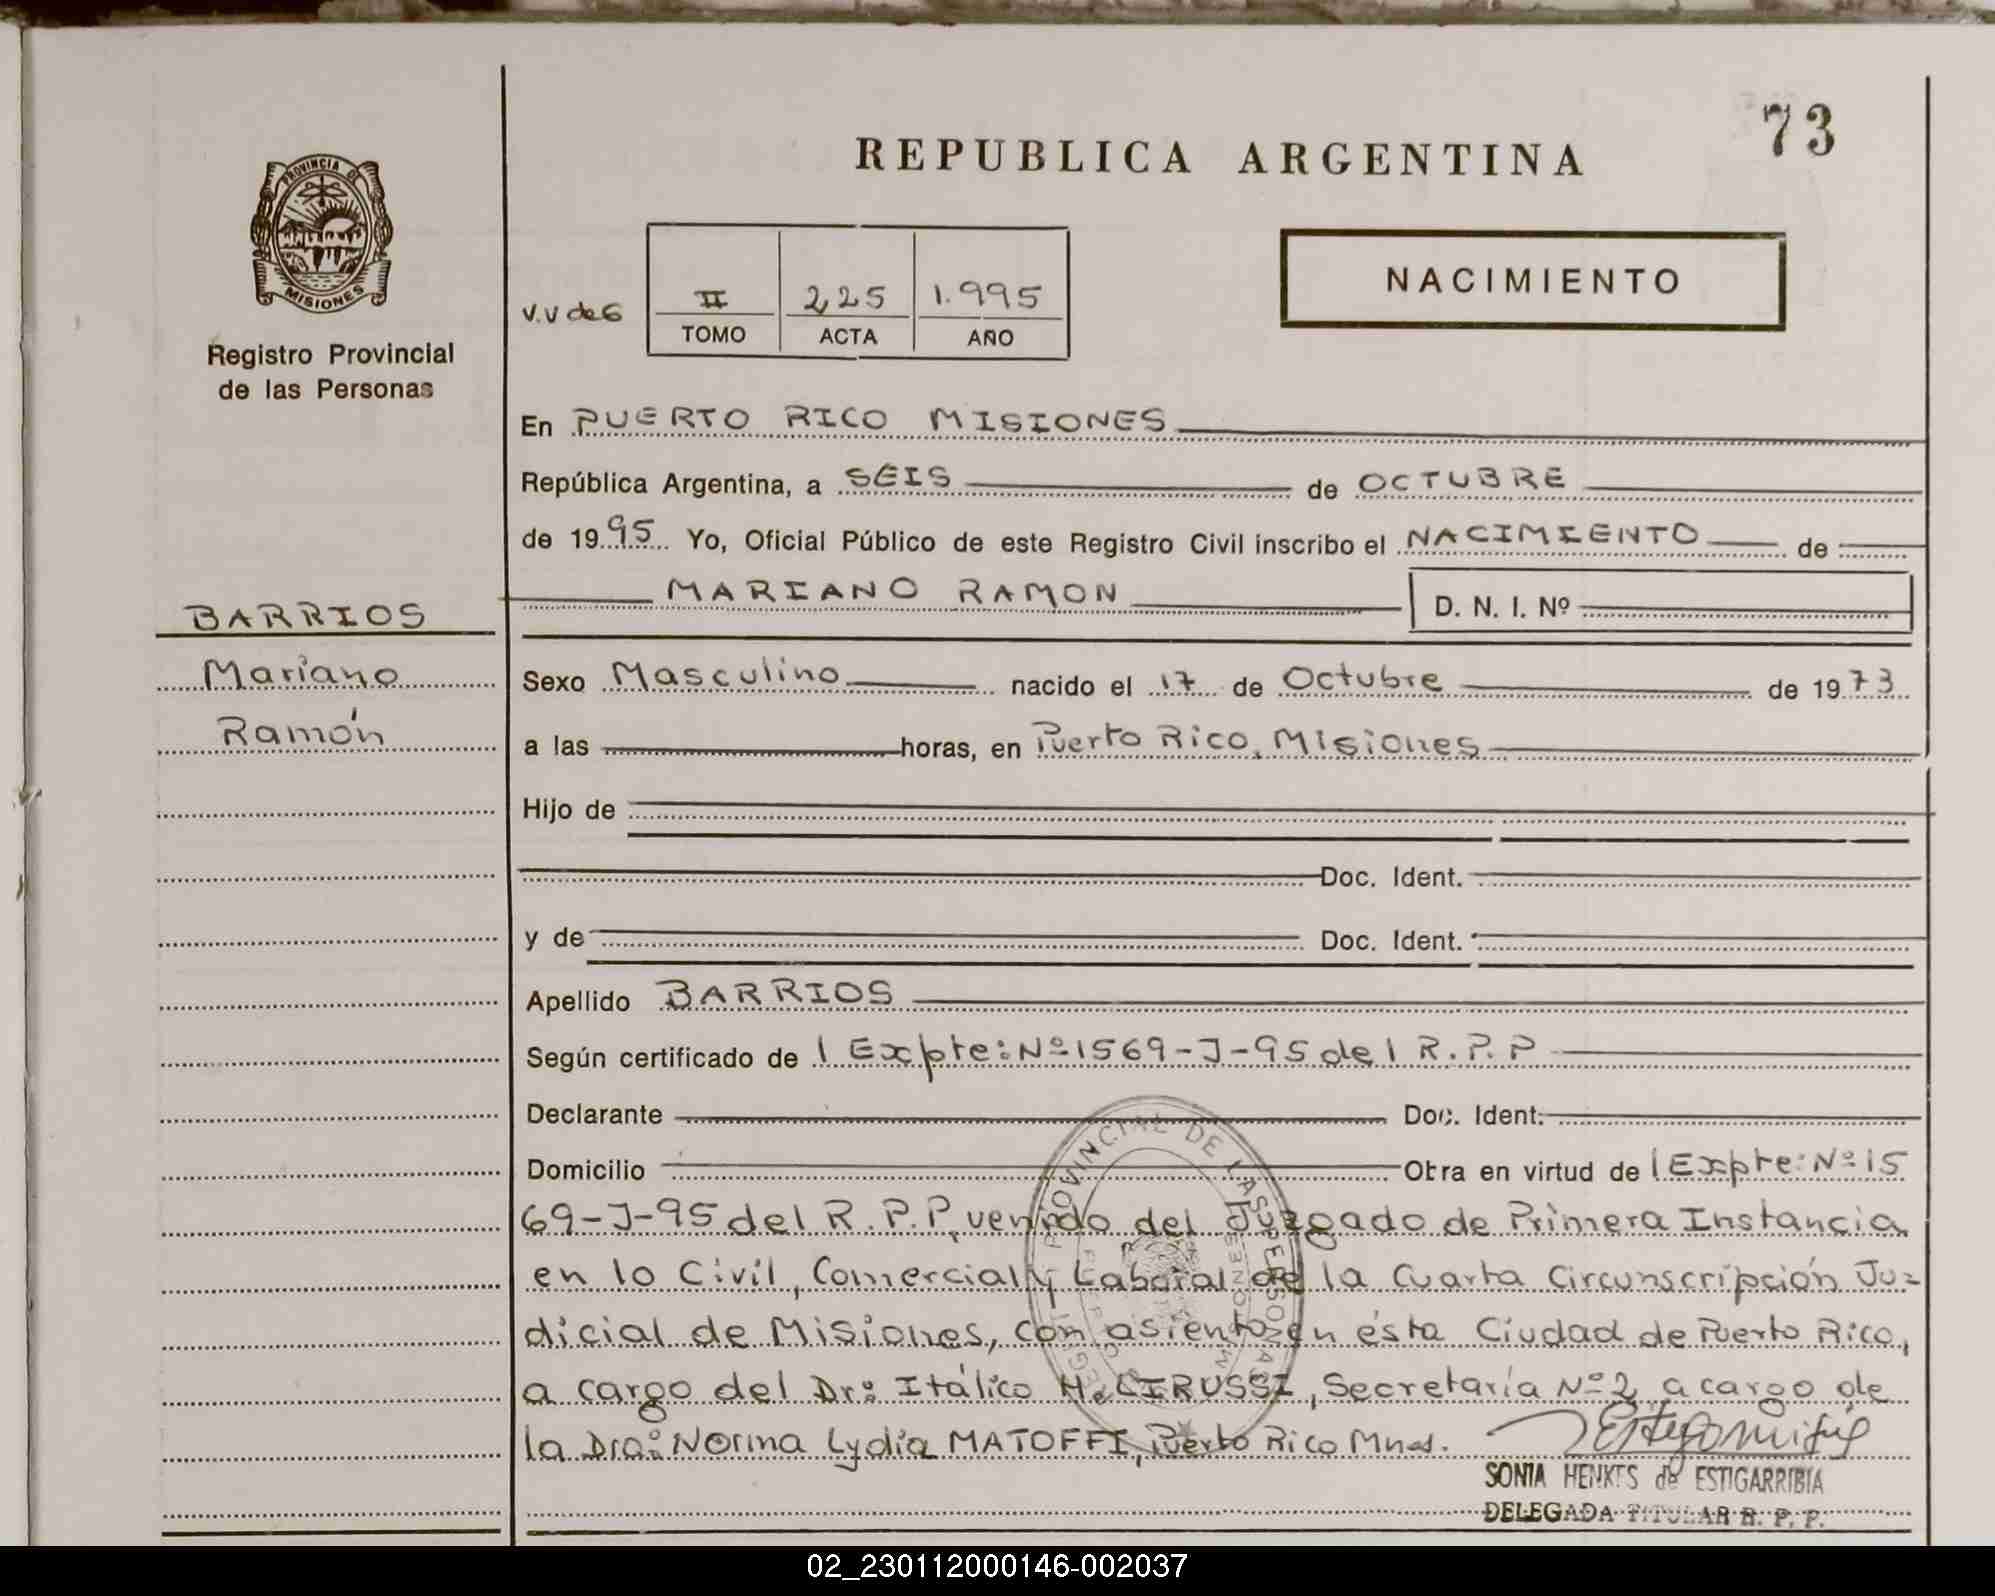 73
REPUBLICA ARGENTINA
PROVINCIA DE
MISIONES
Registro Provincial
de las Personas
NACIMIENTO
V.V de 6
II 225 1.995
TOMO ACTA AÑO
En PUERTO RICO MISIONES
República Argentina, a SEIS de OCTUBRE
de 1995 Yo, Oficial Público de este Registro Civil inscribo el NACIMIENTO de
MARIANO RAMON D. N. I. Nº
BARRIOS
Mariano
Ramón
Sexo Masculino nacido el 17 de Octubre de 1973
a las horas, en Puerto Rico, Misiones
Hijo de
Doc. Ident.
y de Doc. Ident.
Apellido BARRIOS
Según certificado de l Expte: Nº 1569-J-95 del R. P. P
Declarante Doc. Ident.
Domicilio Otra en virtud de l Expte: Nº 15
69-J-95 del R. P. P, venido del Juzgado de Primera Instancia
en lo Civil, Comercial y Laboral de la Cuarta Circunscripción Ju-
dicial de Misiones, con asiento en ésta Ciudad de Puerto Rico,
a cargo del Dr: Itálico H. CIRUSSI, Secretaría Nº 2 a cargo de
la Dra: Norma Lydia MATOFFI, Puerto Rico Mnes.
SONIA HENKES de ESTIGARRIBIA
DELEGADA TITULAR R. P. P.
PROVINCIAL DE LAS PERSONAS
MISIONES
02_230112000146-002037